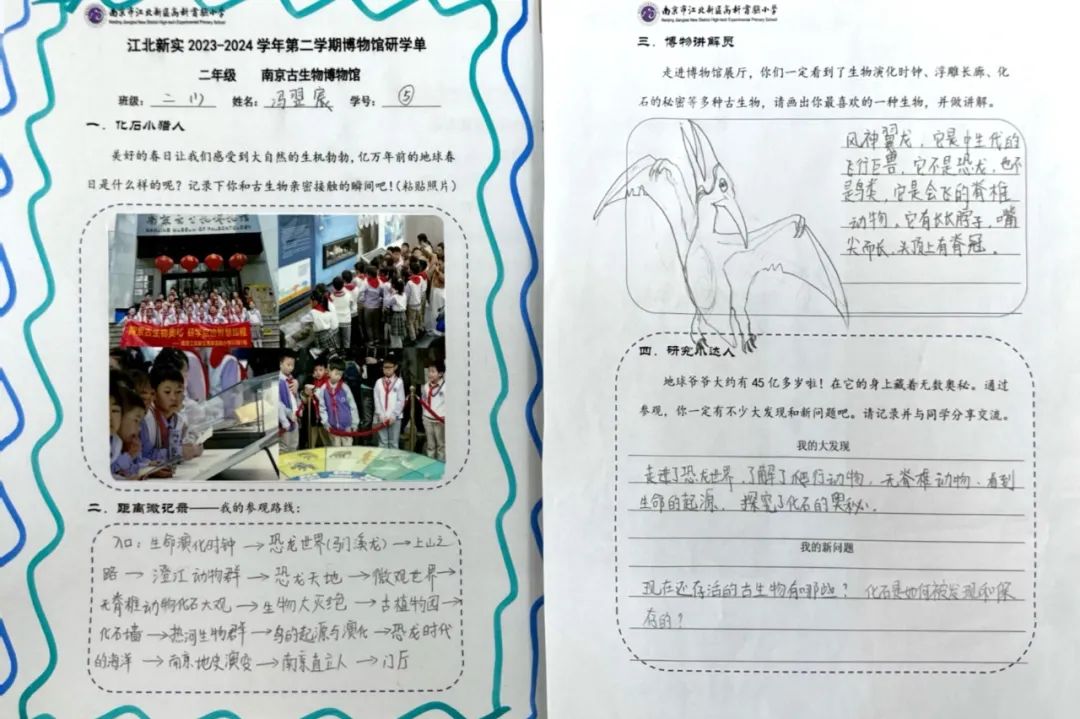 南京市江北新区高新实验小学
Nanjing Jiangbei New District High-tech Experimental Primary School
江北新实 2023-2024 学年第二学期博物馆研学单
二年级 南京古生物博物馆
班级：二（1） 姓名：冯翌宸 学号：⑤
一．化石小猎人
美好的春日让我们感受到大自然的生机勃勃，亿万年前的地球春
日是什么样的呢？记录下你和古生物亲密接触的瞬间吧！（粘贴照片）
南京古生物博物馆
NANJING MUSEUM OF PALAEONTOLOGY
二．距离微记录——我的参观路线：
入口：生命演化时钟→恐龙世界（马门溪龙）→上山之
路→澄江动物群→恐龙天地→微观世界→
无脊椎动物化石大观→生物大灭绝→古植物园→
化石墙→热河生物群→鸟的起源与演化→恐龙时代
的海洋→南京地史演变→南京直立人→门厅
南京市江北新区高新实验小学
Nanjing Jiangbei New District High-tech Experimental Primary School
三．博物讲解员
走进博物馆展厅，你们一定看到了生物演化时钟、浮雕长廊、化
石的秘密等多种古生物，请画出你最喜欢的一种生物，并做讲解。
风神翼龙，它是中生代的
飞行巨兽，它不是恐龙，也不
是鸟类，它是会飞的脊椎
动物，它有长长脖子，嘴
尖而长，头顶上有脊冠。
四．研究小达人
地球爷爷大约有 45 亿多岁啦！在它的身上藏着无数奥秘。通过
参观，你一定有不少大发现和新问题吧。请记录并与同学分享交流。
我的大发现
走进了恐龙世界，了解了爬行动物，无脊椎动物，看到
生命的起源，探究了化石的奥秘。
我的新问题
现在还存活的古生物有哪些？ 化石是如何被发现和保
存的？